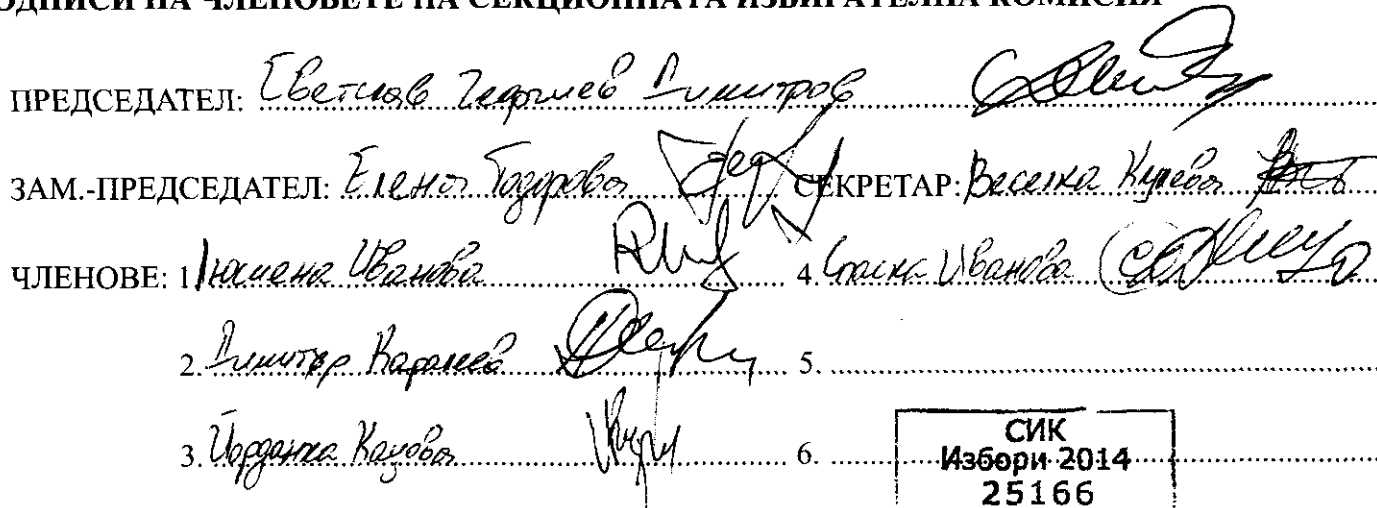 ОДПИСИ НА ЧЛЕНОВЕТЕ НА СЕКЦИОННАТА ИЗБИРАТЕЛНА КОМИСИЯ
ПРЕДСЕДАТЕЛ: Светслав Георгиев Димитров
ЗАМ.-ПРЕДСЕДАТЕЛ: Елена Тодорова СЕКРЕТАР: Веселка
ЧЛЕНОВЕ: 1. Иванова 4. Спаска Иванова
2. Димитър 5.
3. Йорданка 6.
СИК
Избори 2014
25166